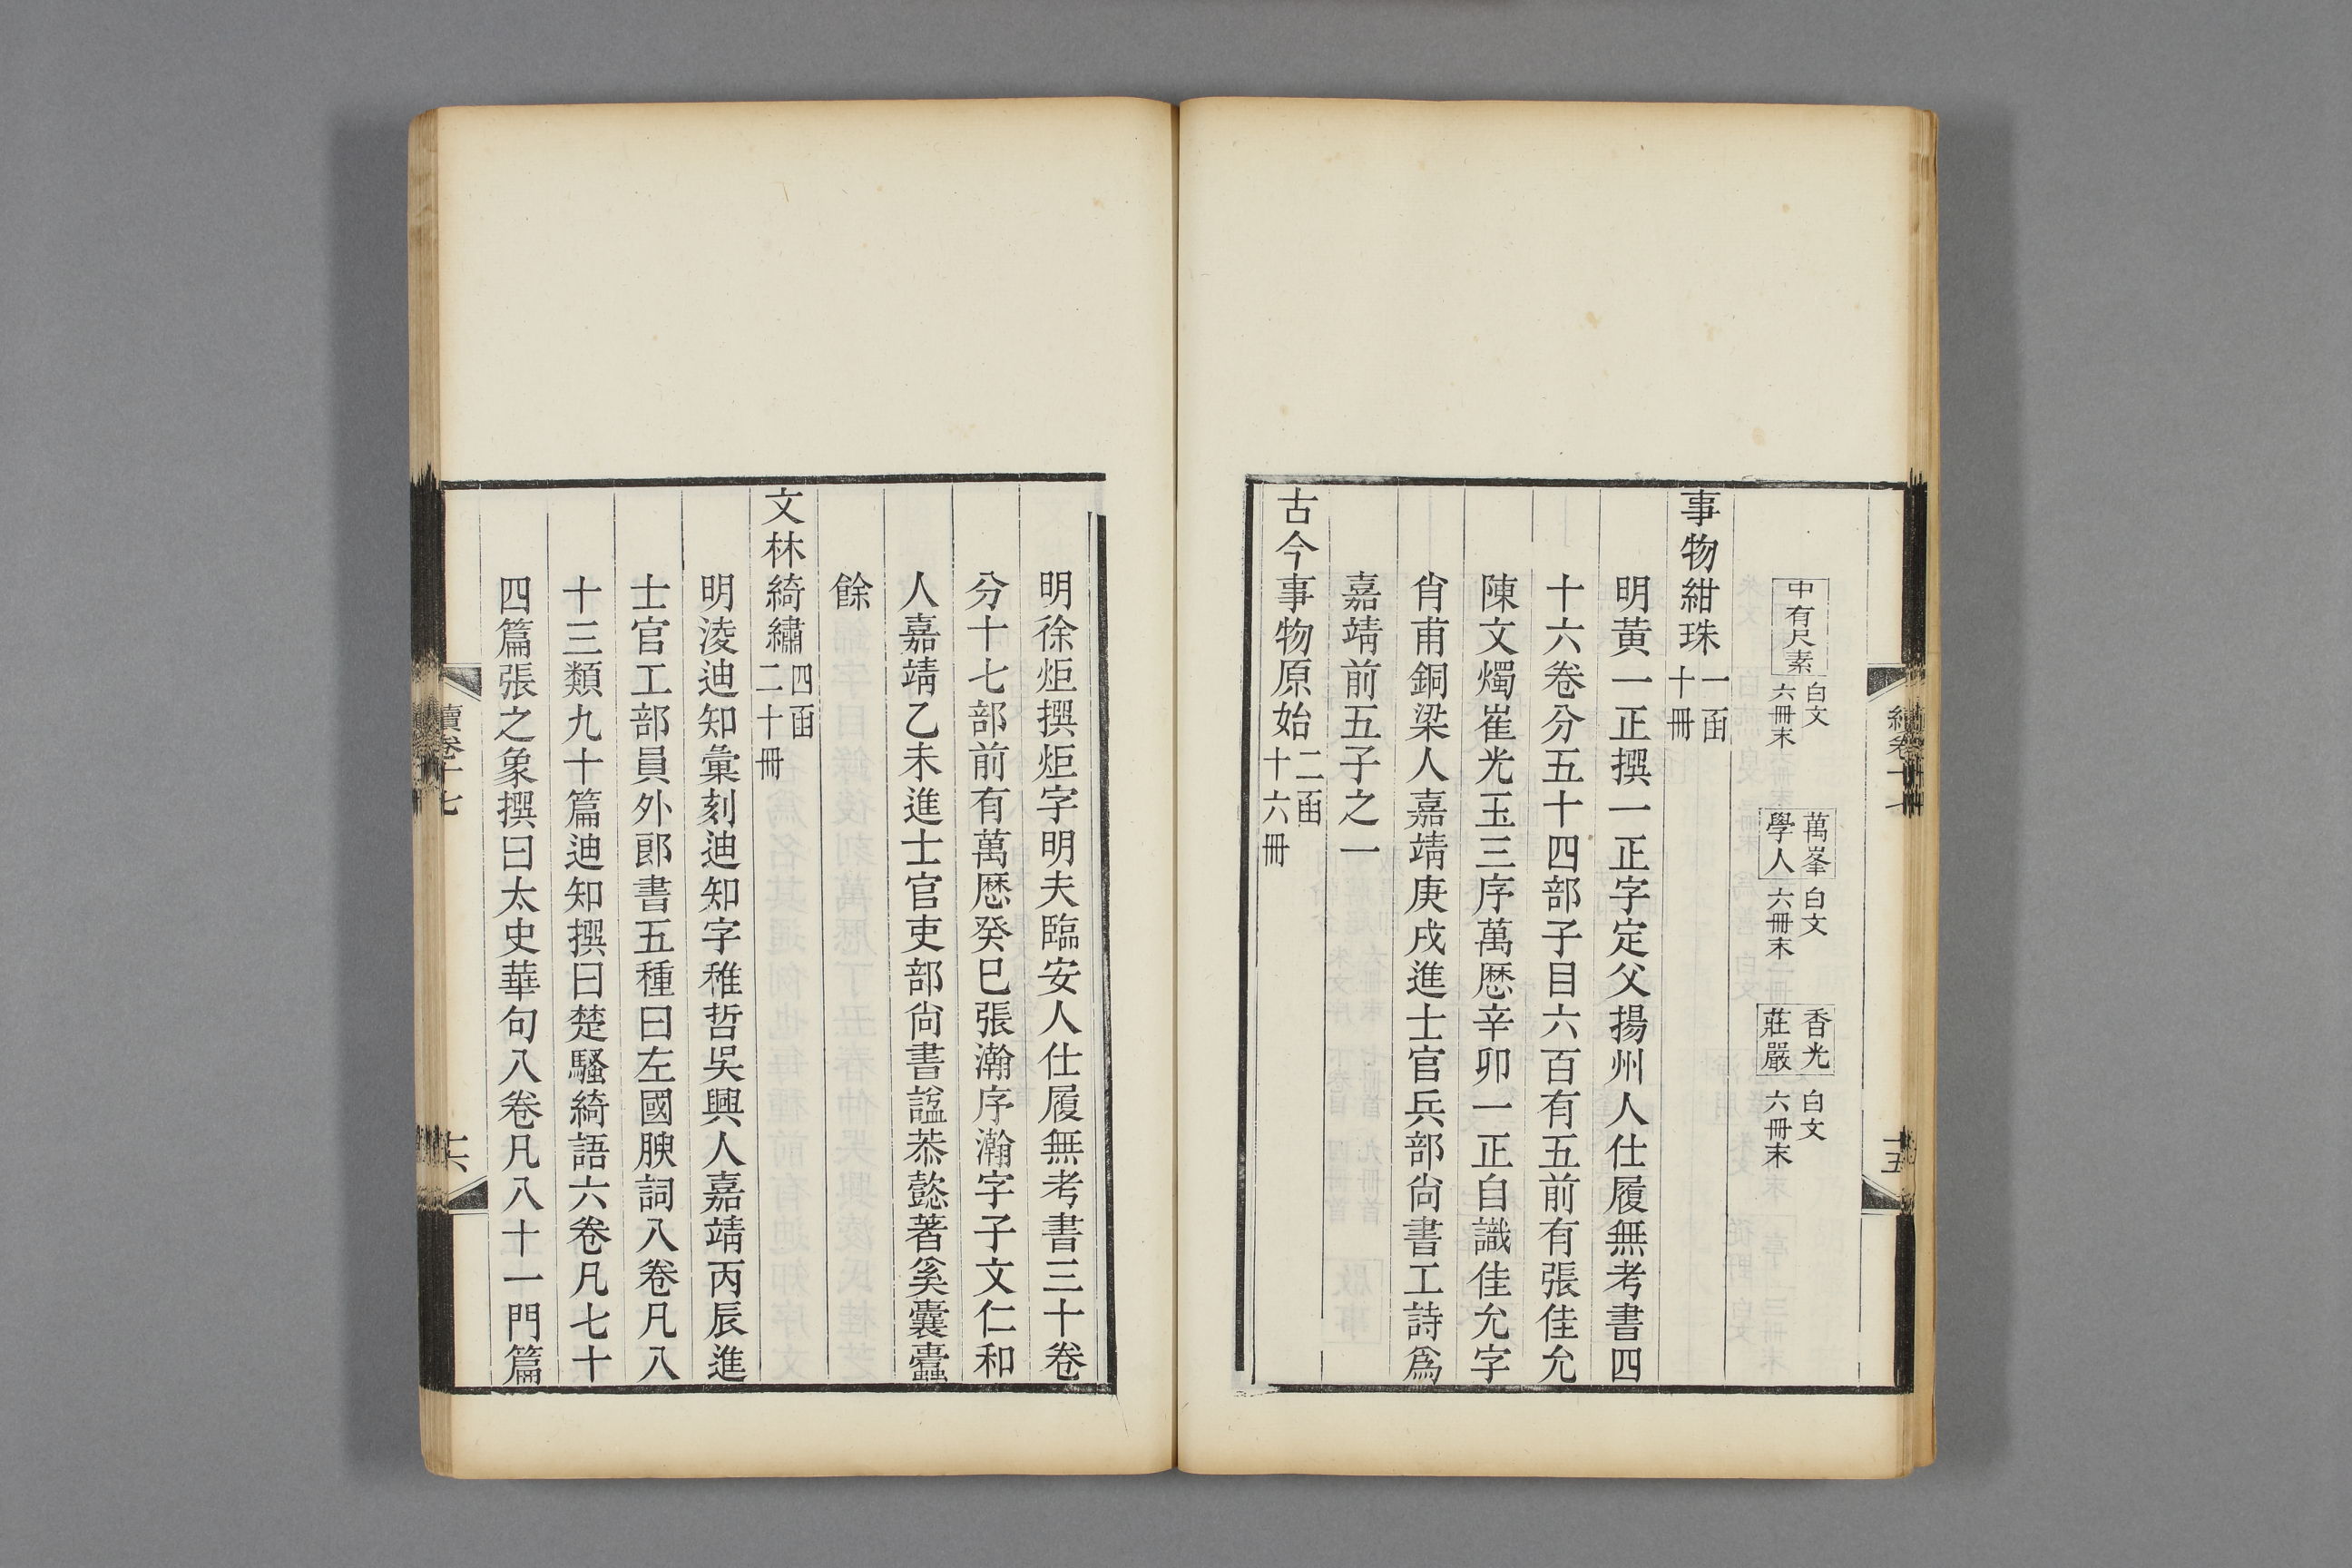 續卷十七
十五
中有尺素 白文 六冊末 萬峯學人 白文 六冊末 香光莊嚴 白文 六冊末
事物紺珠 一函 十冊
明黃一正撰一正字定父揚州人仕履無考書四
十六卷分五十四部子目六百有五前有張佳允
陳文燭崔光玉三序萬歷辛卯一正自識佳允字
肖甫銅梁人嘉靖庚戌進士官兵部尚書工詩爲
嘉靖前五子之一
古今事物原始 二函 十六冊
明徐炬撰炬字明夫臨安人仕履無考書三十卷
分十七部前有萬歷癸巳張瀚序瀚字子文仁和
人嘉靖乙未進士官吏部尚書諡恭懿著奚囊蠹
餘
文林綺繡 四函 二十冊
明淩迪知彙刻迪知字稚哲吳興人嘉靖丙辰進
士官工部員外郎書五種曰左國腴詞八卷凡八
十三類九十篇迪知撰曰楚騷綺語六卷凡七十
四篇張之象撰曰太史華句八卷凡八十一門篇
續卷十七
十六